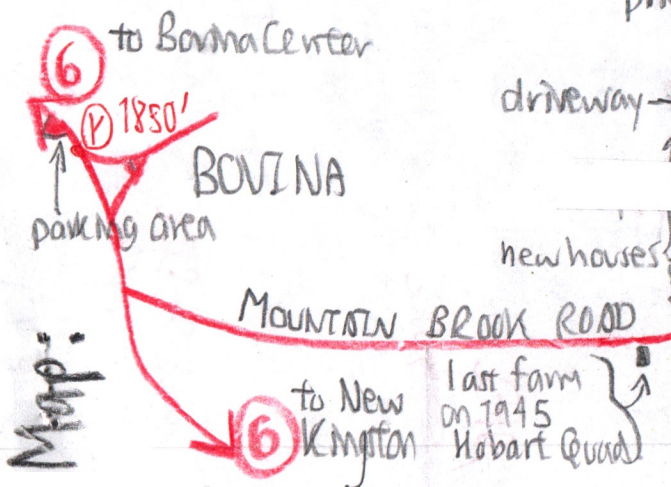 to Bovina Center
6
P 1850'
driveway
BOVINA
parking area
new houses
MOUNTAIN BROOK ROAD
Map:
to New
Kingston
6
last farm
on 1945
Hobart Quad